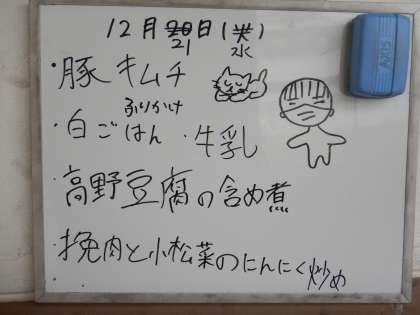 12月20日(火)
21 水
・豚キムチ
ふりかけ
・白ごはん ・牛乳
・高野豆腐の含め煮
・挽肉と小松菜のにんにく炒め